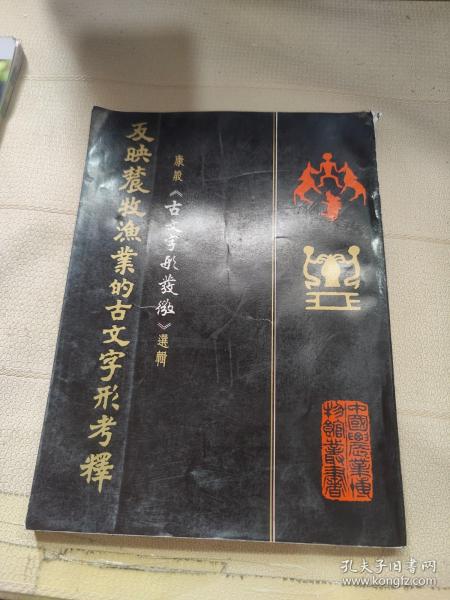 反映農牧漁業的古文字形考釋
康殷《古文字形發微》選輯
中國農業博
物館叢書
孔夫子旧书网
www.kongfz.com